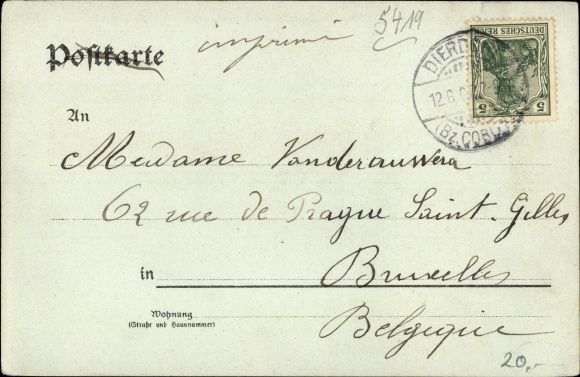 5419
imprimé
Postkarte
DEUTSCHES REICH
5 5
12.6.
(Bz. COBL
An
Madame Vanderauwera
62 rue de Prague Saint-Gilles
in Bruxelles
Wohnung
(Straße und Hausnummer)
Belgique
20,-